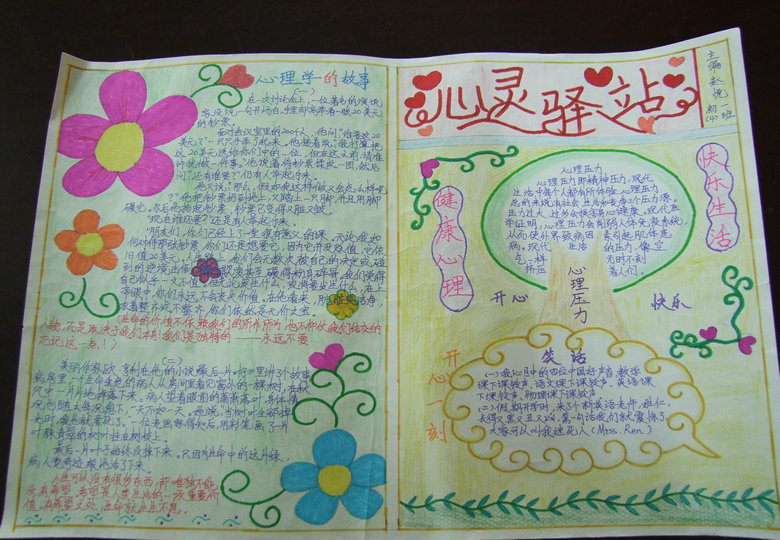 心理学的故事
(一)
在一次讨论会上,一位著名的演说
家没说一句开场白,手里却高举着一张20美元
的钞票。
面对会议室里的200个人,他问:"谁要这20
美元?"一只只手举了起来。他接着说:"我打算把
这20美元送给你们中的一位,但在这之前,请准
许我做一件事。"他说着将钞票揉成一团,然后
问:"还有谁要?"仍有人举起手来。
他又说:"那么,假如我这样做又会怎么样呢
?"他把钞票扔到地上,又踏上一只脚,并且用脚
碾它。尔后他拾起钞票,钞票已变得又脏又皱。
"现在谁还要?"还是有人举起手来。
"朋友们,你们已经上了一堂很有意义的课。无论我如
何对待那张钞票,你们还是想要它,因为它并没贬值,它依
旧值20美元。人生路上,我们会无数次被自己的决定或碰
到的逆境击倒、欺凌甚至碾得粉身碎骨。我们觉得
自己似乎一文不值。但无论发生什么,或将要发生什么,在上
帝眼中,你们永远不会丧失价值。在他看来,肮脏或洁净,
衣着整齐或不整齐,你们依然是无价之宝。
(生命的价值不依赖我们的所作所为,也不仰仗我们结交的
人物,而是取决于我们本身!我们是独特的——永远不要
忘记这一点!)
(二)
美国作家欧·亨利在他的小说《最后一片叶子》里讲了个故事:
病房里,一个生命垂危的病人从房间里看见窗外的一棵树,在秋
风中一片片地掉落下来。病人望着眼前的萧萧落叶,身体情
况也随之每况愈下,一天不如一天。她说:"当树叶全部掉
光时,我也就要死了。"一位老画家得知后,用彩笔画了一片
叶脉青翠的树叶挂在树枝上。
最后一片叶子始终没掉下来。只因为生命中的这片绿,
病人竟奇迹般地活了下来。
人生可以没有很多东西,却唯独不能
没有希望。希望是人类生活的一项重要价
值。有希望之处,生命就生生不息。
心灵驿站
主编 赵悦
初一(4)班
健康心理
快乐生活
心理压力
心理压力即精神压力,现代
生活中每个人都有所体验,心理压力
总的来说有社会、生活和竞争三个压力源。
压力过大、过多会损害身心健康。现代医
学证明,心理压力会削弱人体免疫系统,
从而使外界致病因素引起肌体患
病。现代生活的压力,像空
气一样无时不刻
挤压着人们。
心理压力
开心
快乐
开心一刻
笑话
(一)我心目中的四位中国好声音:数学
课下课铃声,语文课下课铃声,英语课
下课铃声,物理课下课铃声。